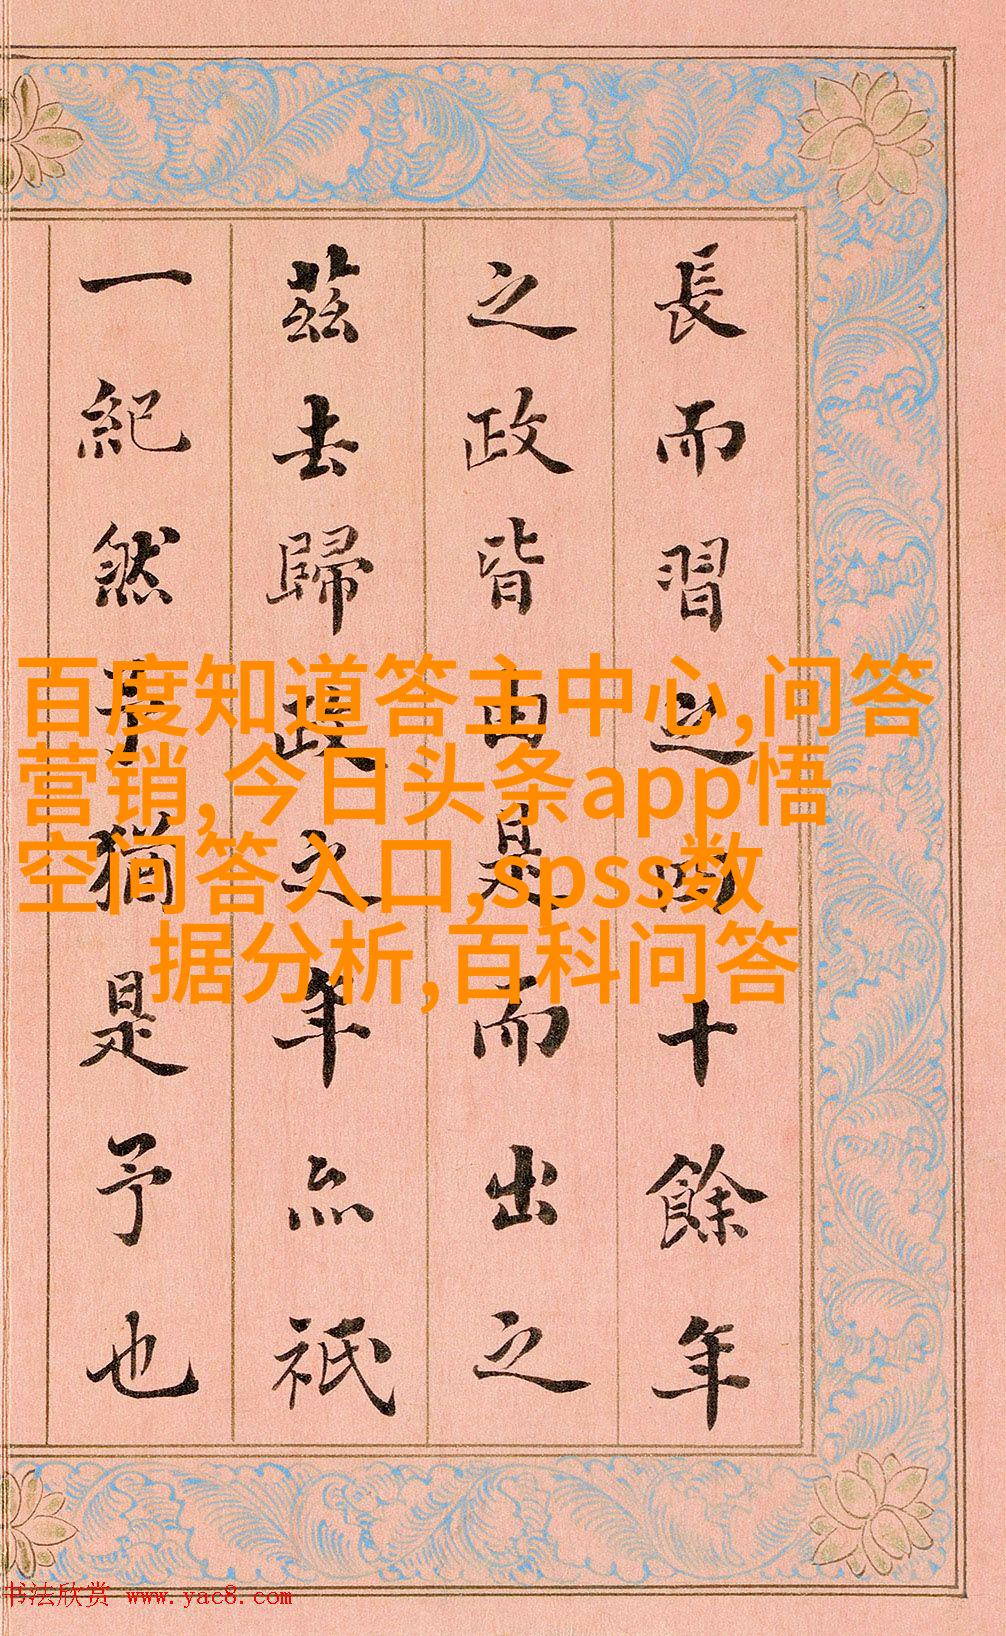 長而習之四十餘年
之政皆由是而出之
茲去歸政之年亦祇
一紀然予猶是予也
百度知道答主中心,问答
营销,今日头条app悟
空问答入口,spss数
据分析,百科问答
书法欣赏 www.yac8.com